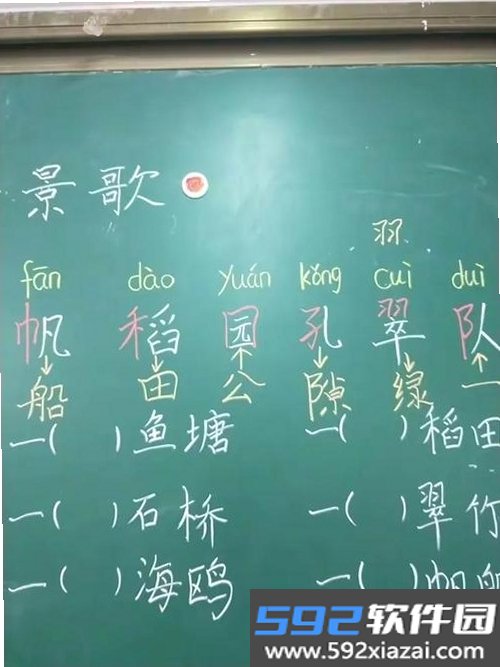 景歌
羽
fān dào yuán kǒng cuì duì
帆 稻 园 孔 翠 队
船 田 公 隙 绿 一
一( )鱼塘 一( )稻田
一( )石桥 一( )翠竹
一( )海鸥 一( )帆船
592软件园
www.592xiazai.com